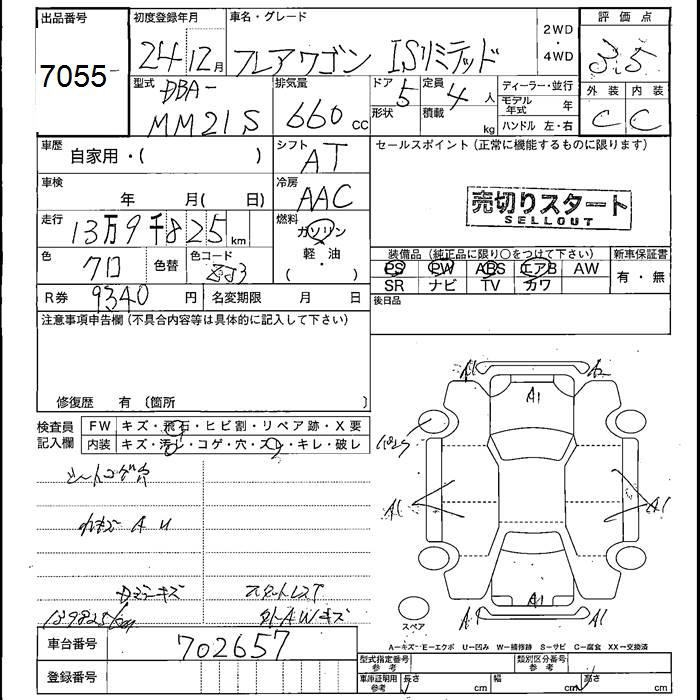 出品番号 初度登録年月 車名・グレード 2WD ・ 4WD 評価点
7055 24 12月 フレアワゴン ISリミテッド 3.5
型式 DBA- 排気量 ドア 5 定員 4人 ディーラー・並行 外装 内装
MM21S 660cc 形状 積載 kg モデル年式 年 C C
ハンドル 左・右
車歴 自家用・( ) シフト AT セールスポイント(正常に機能するものに限ります)
車検 年 月( 日) 冷房 AAC
売切りスタート
SELLOUT
走行 13万9千825km 燃料 ガソリン
軽・油
・
( )
色 クロ 色替 色コード ZJ3
装備品(純正品に限り○をつけて下さい) 新車保証書
PS PW ABS エアB AW 有・無
SR ナビ TV カワ
R券 9340円 名変期限 月 日 後日品
注意事項申告欄(不具合内容等は具体的に記入して下さい)
修復歴 有 〔箇所 〕
検査員記入欄 FW キズ・飛石・ヒビ割・リペア跡・X要
内装 キズ・汚レ・コゲ・穴・スレ・キレ・破レ
シートコゲ穴
A U
キズ スタートレスT
139825km 外AWキズ
A1 A1 A1
A1 A1
A1 A1 A1
スペア
A=キズ E=エクボ U=凹み W=補修跡 S=サビ C=腐食 XX=交換済
車台番号 702657
登録番号
型式指定番号 参考 類別区分番号 参考
車庫証明用 参考 長さ cm 幅 cm 高さ cm